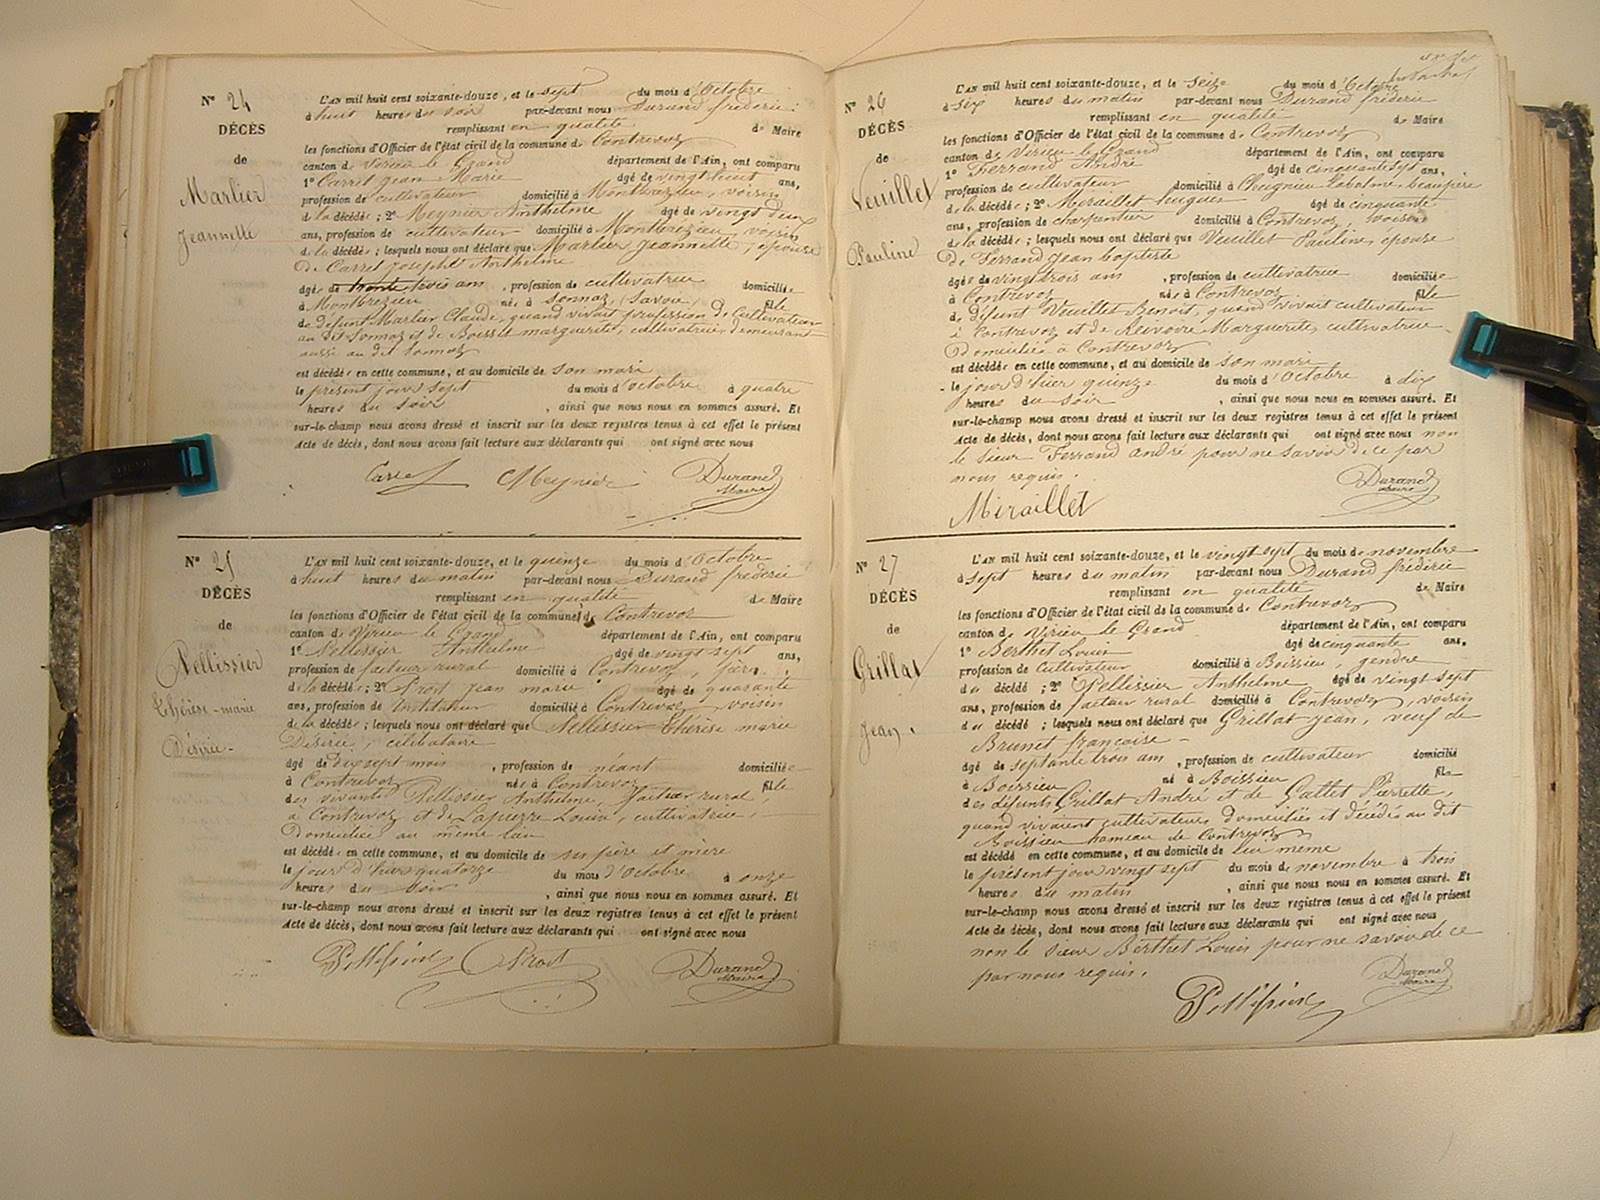 N° 24
DÉCÈS
de
Marlier
Jeannette
L'AN mil huit cent soixante-douze, et le sept du mois d'Octobre
à huit heures du soir par-devant nous Durand fréderic
remplissant en qualité de Maire
les fonctions d'Officier de l'état civil de la commune de Contrevoz
canton de Virieu le Grand département de l'Ain, ont comparu
1° Carret Jean Marie âgé de vingt huit ans,
profession de cultivateur domicilié à Montbrezieu, voisin
de la décédée ; 2° Meynier Anthelme âgé de vingt deux
ans, profession de cultivateur domicilié à Montbrezieu, voisin
de la décédée ; lesquels nous ont déclaré que Marlier Jeannette, épouse
de Carret Joseph Anthelme
âgée de trente trois ans, profession de cultivatrice domiciliée
à Montbrezieu née à Sonnaz (Savoie) fille
de défunt Marlier Claude, quand vivait profession de Cultivateur
au dit Sonnaz et de Boissat marguerite, cultivatrice, demeurant
aussi au dit Sonnaz
est décédée en cette commune, et au domicile de son mari
le présent jour sept du mois d'octobre à quatre
heures du soir, ainsi que nous nous en sommes assuré. Et
sur-le-champ nous avons dressé et inscrit sur les deux registres tenus à cet effet le présent
Acte de décès, dont nous avons fait lecture aux déclarants qui ont signé avec nous
Meynier Durand
Maire
N° 25
DÉCÈS
de
Pellissier
Thérèse-marie
Désirée-
L'AN mil huit cent soixante-douze, et le quinze du mois d'Octobre
à huit heures du matin par-devant nous Durand fréderic
remplissant en qualité de Maire
les fonctions d'Officier de l'état civil de la commune de Contrevoz
canton de Virieu le Grand département de l'Ain, ont comparu
1° Pellissier Anthelme âgé de vingt sept ans,
profession de facteur rural domicilié à Contrevoz, père
de la décédée ; 2° Prost Jean marie âgé de quarante
ans, profession de Instituteur domicilié à Contrevoz, voisin
de la décédée ; lesquels nous ont déclaré que Pellissier Thérèse marie
Désirée, célibataire
âgé de dix sept mois, profession de néant domiciliée
à Contrevoz née à Contrevoz fille
des vivants Pellissier Anthelme, facteur rural,
à Contrevoz et de Lapierre Louise, cultivatrice,
Domiciliée au même lieu
est décédée en cette commune, et au domicile de ses père et mère
le jour d'hier quatorze du mois d'Octobre à onze
heures du soir, ainsi que nous nous en sommes assuré. Et
sur-le-champ nous avons dressé et inscrit sur les deux registres tenus à cet effet le présent
Acte de décès, dont nous avons fait lecture aux déclarants qui ont signé avec nous
Pellissier Prost Durand
Maire
N° 26
DÉCÈS
de
Veuillet
Pauline
L'AN mil huit cent soixante-douze, et le seize du mois d'Octobre
à six heures du matin par-devant nous Durand fréderic
remplissant en qualité de Maire
les fonctions d'Officier de l'état civil de la commune de Contrevoz
canton de Virieu le Grand département de l'Ain, ont comparu
1° Ferrand André âgé de cinquante six ans,
profession de cultivateur domicilié à Cheignieu Labalme, beaupère
de la décédée ; 2° Miraillet hugues âgé de cinquante
ans, profession de charpentier domicilié à Contrevoz, voisin
de la décédée ; lesquels nous ont déclaré que Veuillet Pauline, épouse
De Ferrand Jean baptiste
âgée de vingt trois ans, profession de cultivatrice domiciliée
à Contrevoz née à Contrevoz fille
de défunt Veuillet Benoit, quand vivait cultivateur
à Contrevoz et de Reivoire Marguerite, cultivatrice
Domiciliée à Contrevoz
est décédée en cette commune, et au domicile de son mari
le jour d'hier quinze du mois d'Octobre à dix
heures du soir, ainsi que nous nous en sommes assuré. Et
sur-le-champ nous avons dressé et inscrit sur les deux registres tenus à cet effet le présent
Acte de décès, dont nous avons fait lecture aux déclarants qui ont signé avec nous non
le sieur Ferrand André pour ne savoir de ce par
nous requis.
Miraillet Durand
Maire
N° 27
DÉCÈS
de
Grillat
Jean.
L'AN mil huit cent soixante-douze, et le vingt sept du mois de novembre
à sept heures du matin par-devant nous Durand fréderic
remplissant en qualité de Maire
les fonctions d'Officier de l'état civil de la commune de Contrevoz
canton de Virieu le Grand département de l'Ain, ont comparu
1° Berthet Louis âgé de cinquante ans,
profession de Cultivateur domicilié à Boissieu, gendre
du décédé ; 2° Pellissier Anthelme âgé de vingt sept
ans, profession de facteur rural domicilié à Contrevoz, voisin
du décédé ; lesquels nous ont déclaré que Grillat Jean, veuf de
Brunet françoise -
âgé de septante trois ans, profession de cultivateur domicilié
à Boissieu né à Boissieu fils
des défunts Grillat André et de Gattet Pierrette,
quand vivaient cultivateurs domiciliés et décédés au dit
Boissieu hameau de Contrevoz
est décédé en cette commune, et au domicile de lui même
le présent jour vingt sept du mois de novembre à trois
heures du matin, ainsi que nous nous en sommes assuré. Et
sur-le-champ nous avons dressé et inscrit sur les deux registres tenus à cet effet le présent
Acte de décès, dont nous avons fait lecture aux déclarants qui ont signé avec nous
non le sieur Berthet Louis pour ne savoir de ce
par nous requis.
Pellissier Durand
Maire